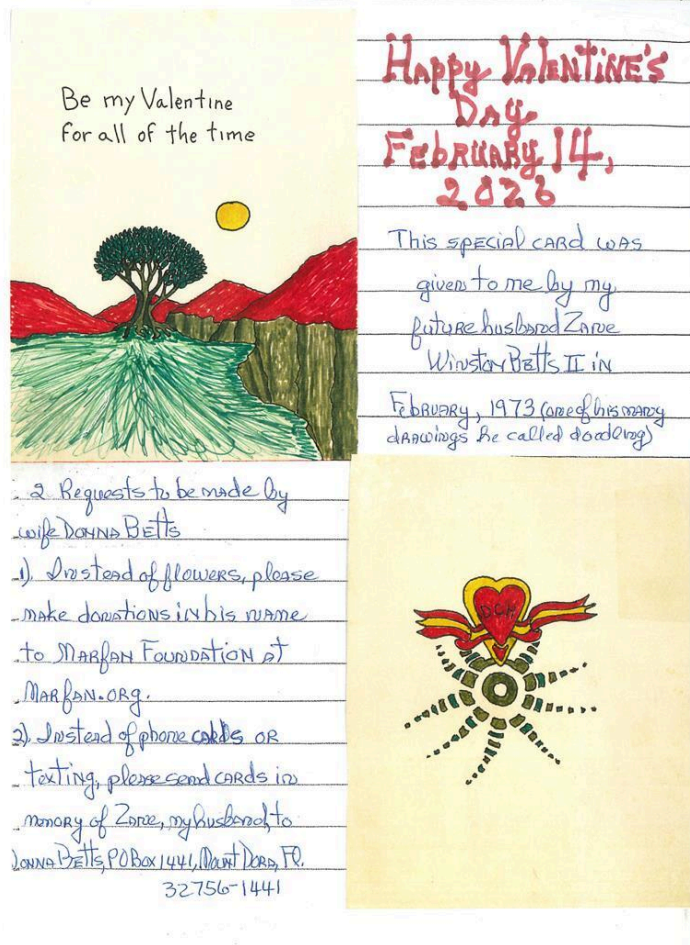 Be my Valentine
For all of the time
Happy Valentine's
Day
February 14,
2026
This special card was
given to me by my
future husband Zane
Winston Betts II in
February, 1973 (one of his many
drawings he called doodling)
2 Requests to be made by
wife Donna Betts
1). Instead of flowers, please
make donations in his name
to Marfan Foundation at
Marfan.org.
2) Instead of phone calls or
texting, please send cards in
memory of Zane, my husband, to
Donna Betts, PO Box 1441, Mount Dora, Fl.
32756-1441
D.C.H.